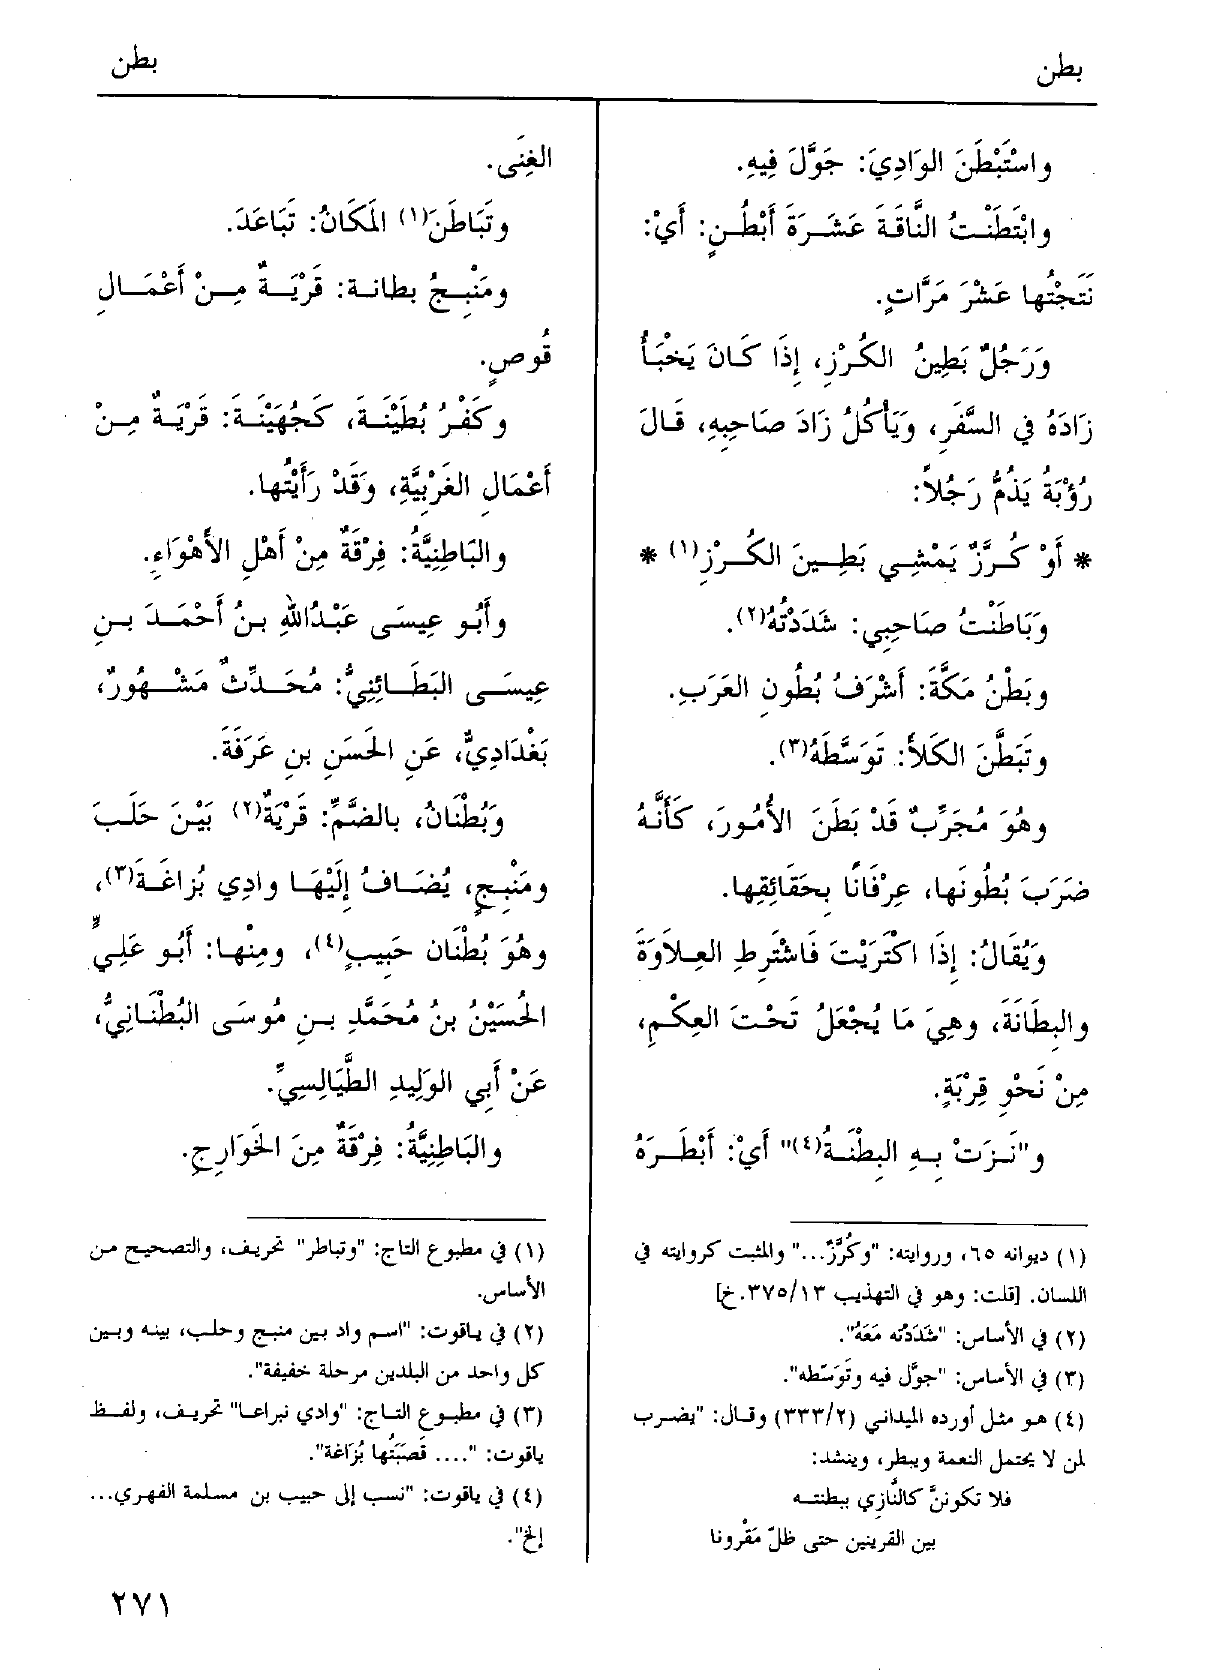 بطن
بطن
واسْتَبْطَنَ الوَادِيَ: جَوَّلَ فِيهِ.
وابْتَطَنْتُ النَّاقَةَ عَشَرَةَ أَبْطُنٍ: أَيْ:
نَتَجْتُها عَشْرَ مَرَّاتٍ.
وَرَجُلٌ بَطِينُ الكُرْزِ، إِذَا كَانَ يَخْبَأُ
زَادَهُ في السَّفَرِ، وَيَأكُلُ زَادَ صَاحِبِهِ، قَالَ
رُؤْبَةُ يَذُمُّ رَجُلاً:
* أَوْ كُرَّزٌ يَمْشِي بَطِينَ الكُرْزِ(١) *
وَبَاطَنْتُ صَاحِبِي: شَدَدْتُهُ(٢).
وبَطْنُ مَكَّةَ: أَشْرَفُ بُطُونِ العَرَبِ.
وتَبَطَّنَ الكَلأَ: تَوَسَّطَهُ(٣).
وهُوَ مُجَرِّبٌ قَدْ بَطَنَ الأُمُورَ، كَأَنَّهُ
ضَرَبَ بُطُونَها، عِرْفَانًا بِحَقَائِقِها.
وَيُقَالُ: إِذَا اكْتَرَيْتَ فَاشْتَرِطِ العِلاَوَةَ
والبِطَانَةَ، وهِيَ مَا يُجْعَلُ تَحْتَ العِكْمِ،
مِنْ نَحْوِ قِرْبَةٍ.
و"نَزَتْ بِهِ البِطْنَةُ(٤)" أَيْ: أَبْطَرَهُ
(١) ديوانه ٦٥، وروايته: "وكُرَّزٌ..." والمثبت كروايته في
اللسان. [قلت: وهو في التهذيب ٣٧٥/١٣.خ]
(٢) في الأساس: "شَدَدْتُه مَعَهُ".
(٣) في الأساس: "جوَّل فيه وتَوَسّطه".
(٤) هو مثل أورده الميداني (٣٣٣/٢) وقال: "يضرب
لمن لا يحتمل النعمة ويبطر، وينشد:
فلا تكوننَّ كالنَّازِي ببطنته
بين القرينين حتى ظلّ مَقْرونا
الغِنَى.
وتَبَاطَنَ(١) المَكَانُ: تَبَاعَدَ.
ومَنْبِجُ بطانة: قَرْيَةٌ مِنْ أَعْمَالِ
قُوصٍ.
وكَفْرُ بُطَيْنَةَ، كَجُهَيْنَةَ: قَرْيَةٌ مِنْ
أَعْمَالِ الغَرْبِيَّةِ، وَقَدْ رَأَيْتُها.
والبَاطِنِيَّةُ: فِرْقَةٌ مِنْ أَهْلِ الأَهْوَاءِ.
وأَبُو عِيسَى عَبْدُاللهِ بنُ أَحْمَدَ بنِ
عِيسَى البَطَائِنِيُّ: مُحَدِّثٌ مَشْهُورٌ،
بَغْدَادِيٌّ، عَنِ الحَسَنِ بنِ عَرَفَةَ.
وَبُطْنَانُ، بالضَّمِّ: قَرْيَةٌ(٢) بَيْنَ حَلَبَ
ومَنْبِجٍ، يُضَافُ إِلَيْهَا وادِي بُزاغَةَ(٣)،
وهُوَ بُطْنَان حَبِيبٍ(٤)، ومِنْها: أَبُو عَلِيٍّ
الحُسَيْنُ بنُ مُحَمَّدِ بنِ مُوسَى البُطْنَانِيُّ،
عَنْ أَبِي الوَلِيدِ الطَّيَالِسِيِّ.
والبَاطِنِيَّةُ: فِرْقَةٌ مِنَ الخَوَارِجِ.
(١) في مطبوع التاج: "وتباطر" تحريف، والتصحيح من
الأساس.
(٢) في ياقوت: "اسم واد بين منبج وحلب، بينه وبين
كل واحد من البلدين مرحلة خفيفة".
(٣) في مطبوع التاج: "وادي نبراعا" تحريف، ولفظ
ياقوت: ".... قَصَبَتُها بُزَاغة".
(٤) في ياقوت: "نسب إلى حبيب بن مسلمة الفهري...
إلخ".
٢٧١